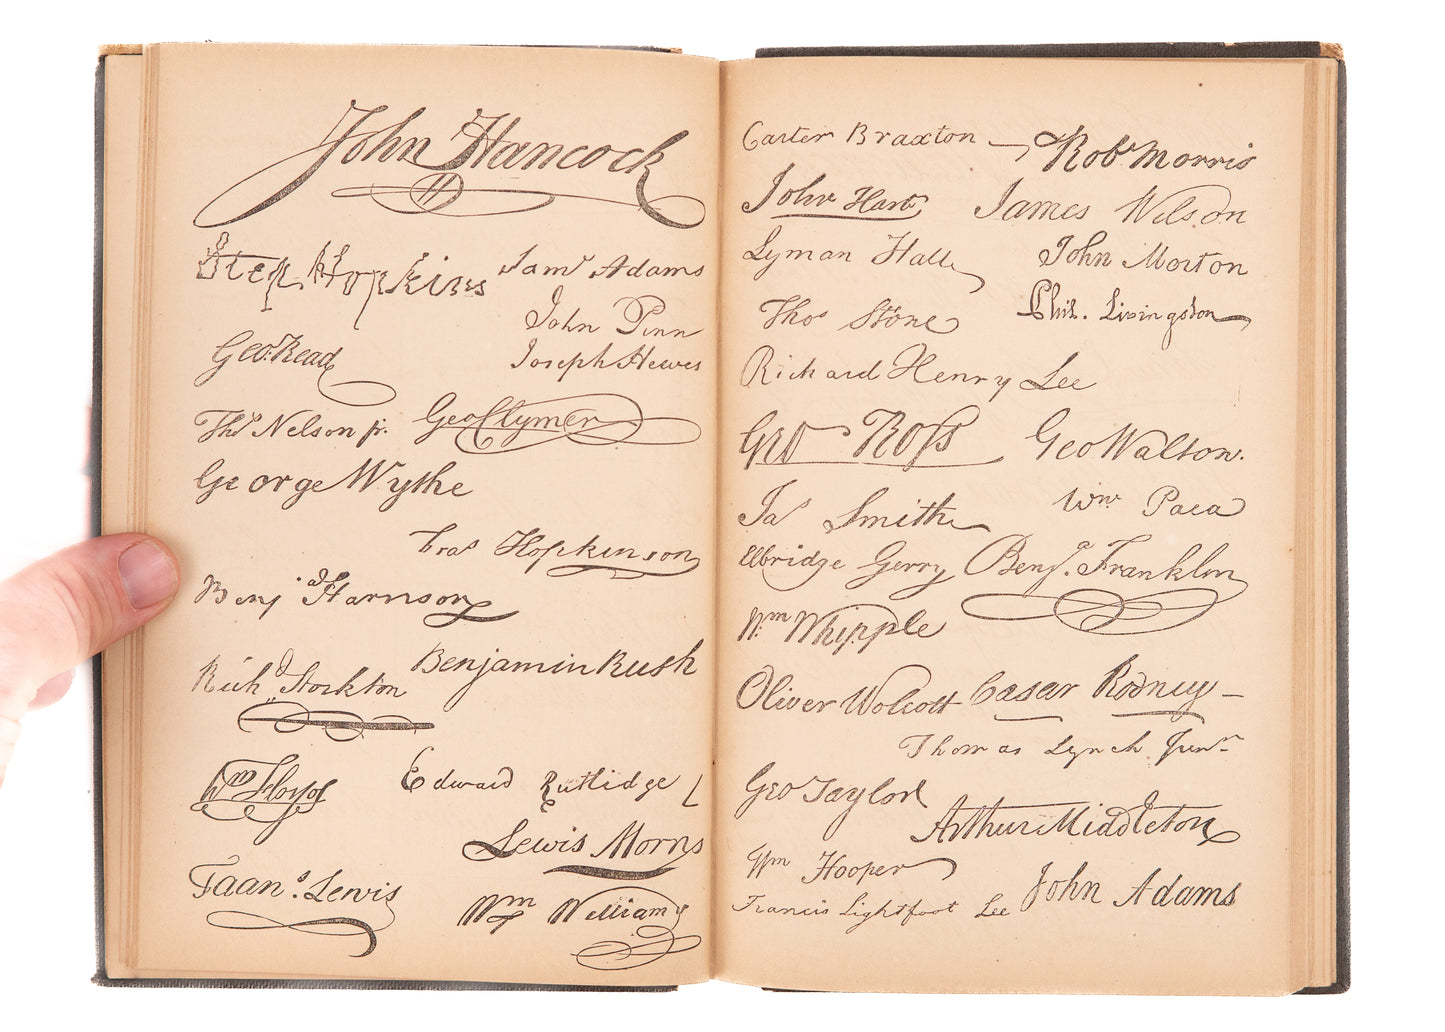 John Hancock
H
Step. Hopkins Saml Adams
John Penn
Geo. Read Joseph Hewes
Thos Nelson jr. Geo Clymer
George Wythe
Fras Hopkinson
Benj Harrison
Benjamin Rush
Richd Stockton
Wm Floyd Edward Rutlidge L
Lewis Morris
Frans. Lewis
Wm Williams
Carter Braxton — Robt Morris
John Hart James Wilson
Lyman Hall John Morton
Thos Stone Phil. Livingston
Richard Henry Lee
Geo Ross Geo Walton.
Jas Smith Wm Paca
Elbridge Gerry Benja. Franklin
Wm Whipple
Oliver Wolcott Cæsar Rodney —
Thomas Lynch Junr
Geo Taylor Arthur Middleton
Wm Hooper
Francis Lightfoot Lee John Adams